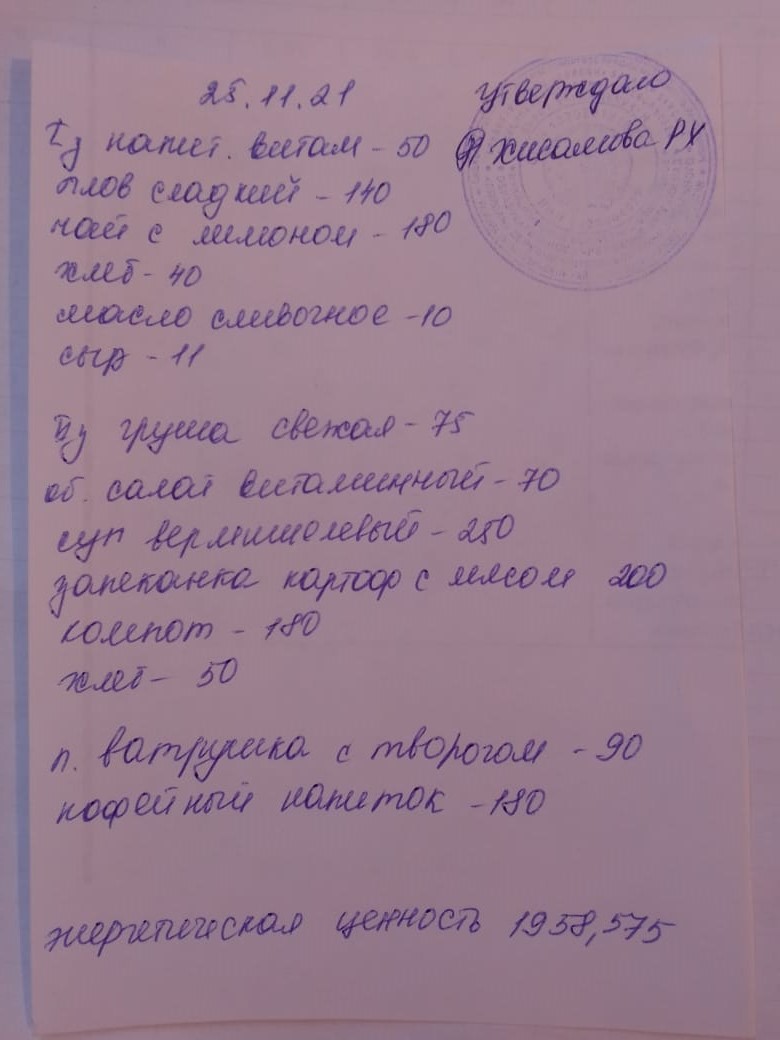 25.11.21
Утверждаю
Iз напит. витам - 50
Хисамова РХ
плов сладкий - 140
чай с лимоном - 180
хлеб - 40
масло сливочное - 10
сыр - 11
IIз груша свежая - 75
об. салат витаминный - 70
суп вермишелевый - 250
запеканка картоф с мясом 200
компот - 180
хлеб - 50
п. ватрушка с творогом - 90
кофейный напиток - 180
энергетическая ценность 1958,575